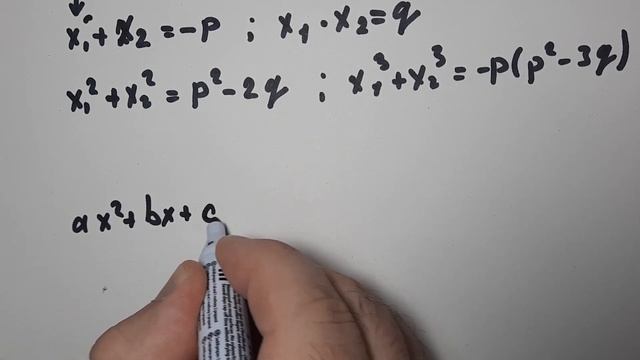 x₁ + x₂ = -p ; x₁ · x₂ = q
x₁² + x₂² = p² - 2q ; x₁³ + x₂³ = -p(p² - 3q)
ax² + bx + c